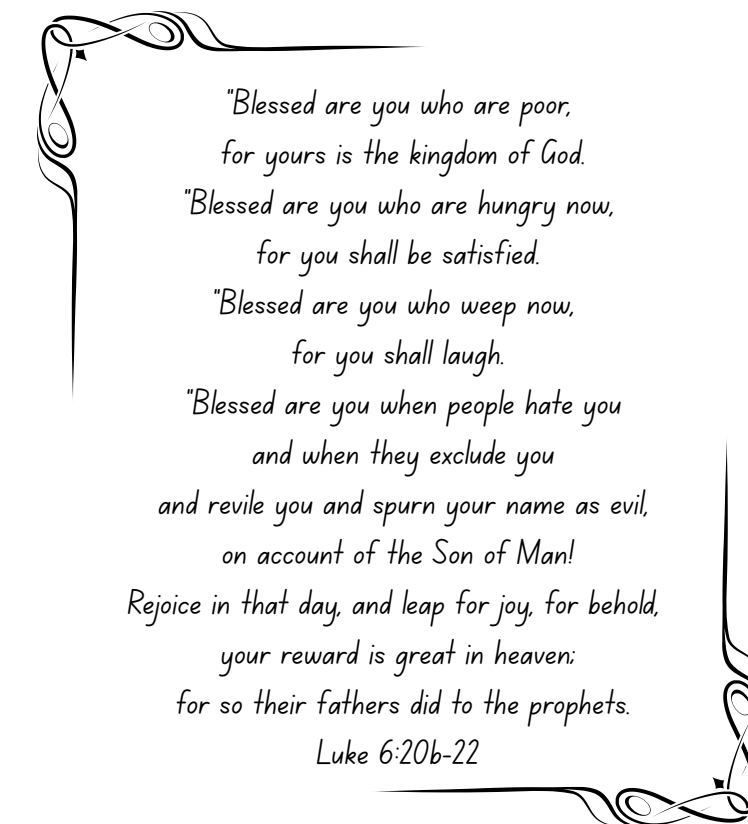 "Blessed are you who are poor,
for yours is the kingdom of God.
"Blessed are you who are hungry now,
for you shall be satisfied.
"Blessed are you who weep now,
for you shall laugh.
"Blessed are you when people hate you
and when they exclude you
and revile you and spurn your name as evil,
on account of the Son of Man!
Rejoice in that day, and leap for joy, for behold,
your reward is great in heaven;
for so their fathers did to the prophets.
Luke 6:20b-22